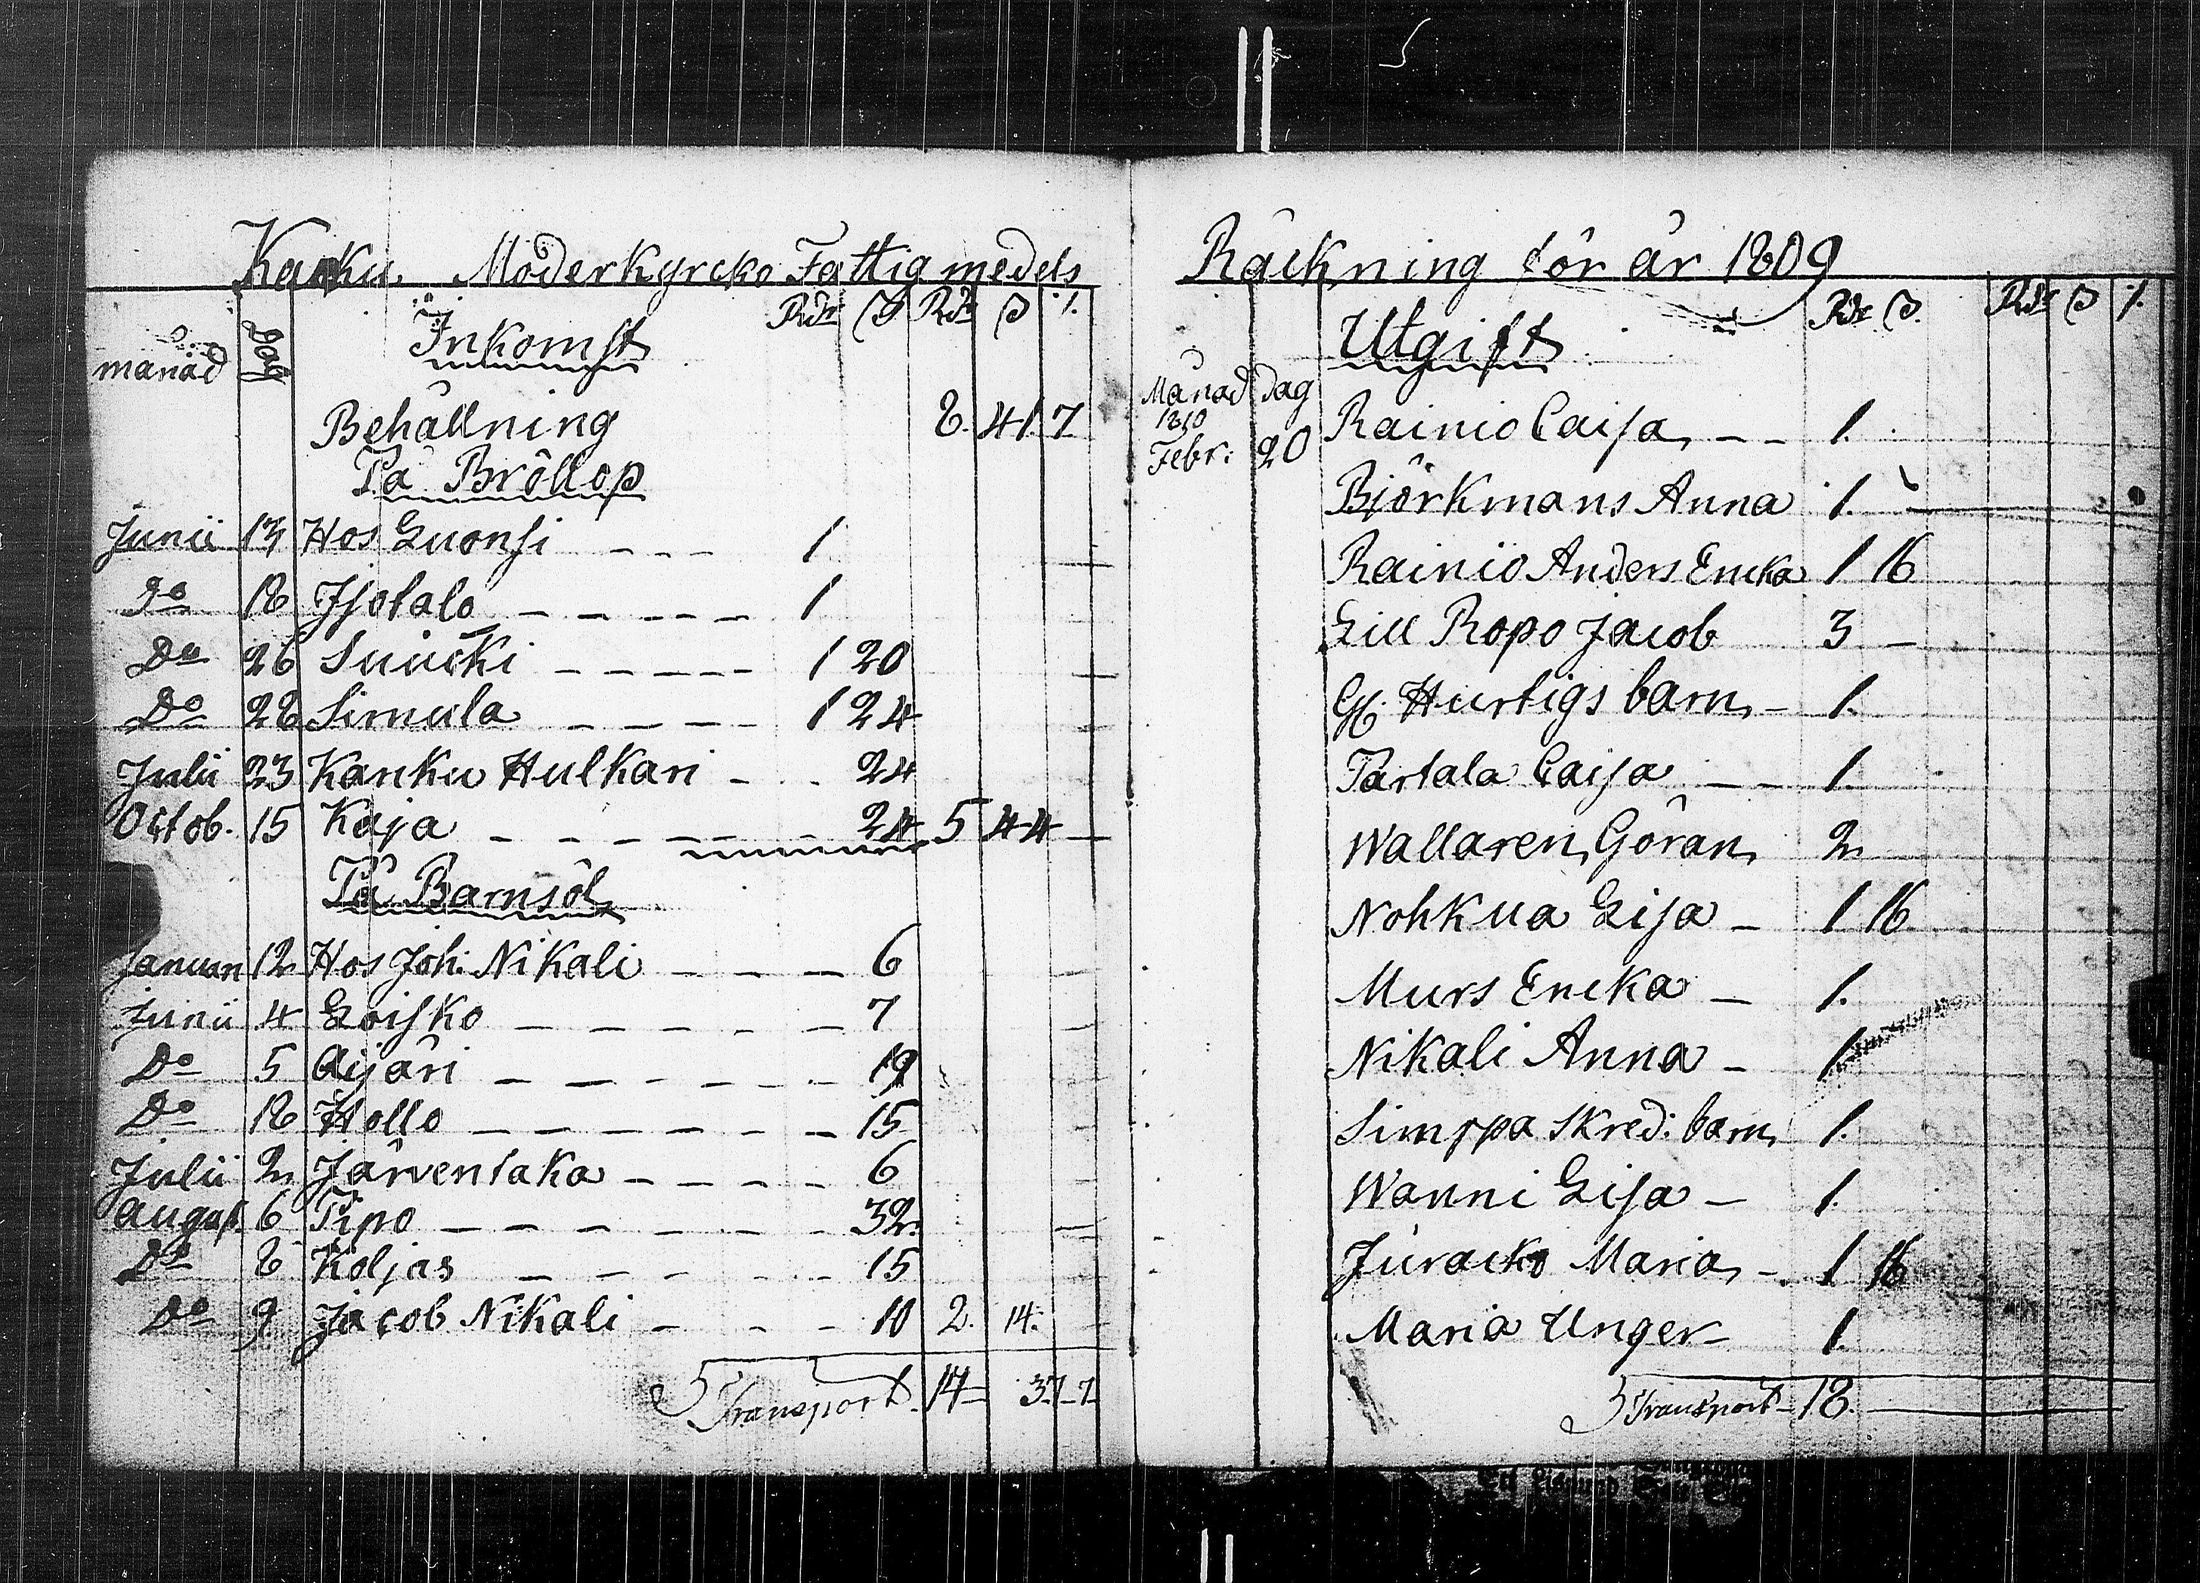 Karku Moderkyrcko Fattig medels
månad Dag Inkomst Rdr ß Rdr ß /.
Behållning 8. 41. 7
På Bröllop
Junii 13 Hos Luonsi - - - 1
do 18 Isotalo - - - - - 1
Do 26 Suucki - - - - - 1 20
Do 28 Simula - - - - 1 24
Julii 23 Karku Hulkari - - - 24
Octob. 15 Koja - - - - - - - 24 5 44 -
På Barnsöl
Januari 12 Hos Joh: Nikali - - - 6
Junii 4 Loisko - - - - - - 7
Do 5 Äijäri - - - - - - 19
Do 18 Hollo - - - - - - 15
Julii 2 Järventaka - - - - 6
August. 6 Tipo - - - - - - 32
Do 8 Koljas - - - - - - 15
Do 9 Jacob Nikali - - - - 10 2. 14. -
Transport 17 - 3.7 - 7
Räckning för år 1809
Utgift Rdr ß. Rdr ß /.
Månad Dag
1810
Febr: 20 Rainio Caisa - - 1.
Björkmans Anna 1.
Rainio Anders Ericka 1 16
Lill Ropo Jacob 3 -
Gl. Hurtigs barn - 1.
Partala Caisa - - 1.
Wallaren Göran 2
Nohkua Lisa - 1 16
Murs Ericka - 1.
Nikali Anna - 1
Simppa Skred: barn 1.
Wanni Lisa - 1.
Juracko Maria - 1 16
Maria Unger - 1.
Transport - 18.